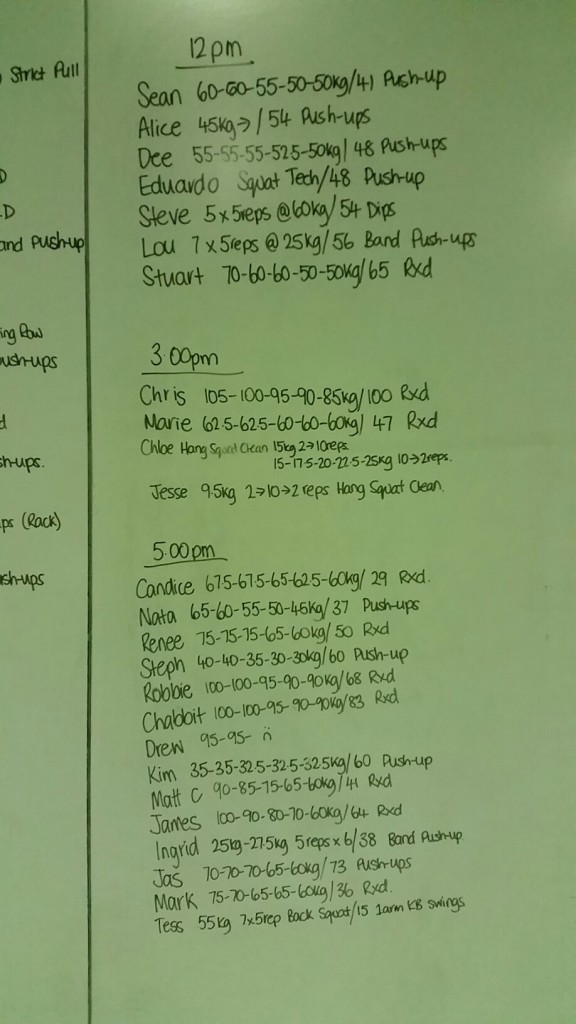 Strict Pull
D
D
and Push-up
ing Row
ush-ups
d
sh-ups.
ps (Rack)
sh-ups
12pm
Sean 60-60-55-50-50kg/41 Push-up
Alice 45kg→/54 Push-ups
Dee 55-55-55-52.5-50kg/48 Push-ups
Eduardo Squat Tech/48 Push-up
Steve 5x5reps @60kg/54 Dips
Lou 7x5reps @25kg/56 Band Push-ups
Stuart 70-60-60-50-50kg/65 Rxd
3.00pm
Chris 105-100-95-90-85kg/100 Rxd
Marie 62.5-62.5-60-60-60kg/47 Rxd
Chloe Hang Squat Clean 15kg 2→10reps
15-17.5-20-22.5-25kg 10→2reps.
Jesse 9.5kg 2→10→2reps Hang Squat Clean.
5.00pm
Candice 67.5-67.5-65-62.5-60kg/29 Rxd.
Nata 65-60-55-50-45kg/37 Push-ups
Renee 75-75-75-65-60kg/50 Rxd
Steph 40-40-35-30-30kg/60 Push-up
Robbie 100-100-95-90-90kg/68 Rxd
Chabbit 100-100-95-90-90kg/83 Rxd
Drew 95-95-
Kim 35-35-32.5-32.5-32.5kg/60 Push-up
Matt C 90-85-75-65-60kg/41 Rxd
James 100-90-80-70-60kg/64 Rxd
Ingrid 25kg-27.5kg 5reps x 6/38 Band Push-up
Jas 70-70-70-65-60kg/73 Push-ups
Mark 75-70-65-65-60kg/36 Rxd.
Tess 55kg 7x5rep Back Squat/15 1arm KB Swings